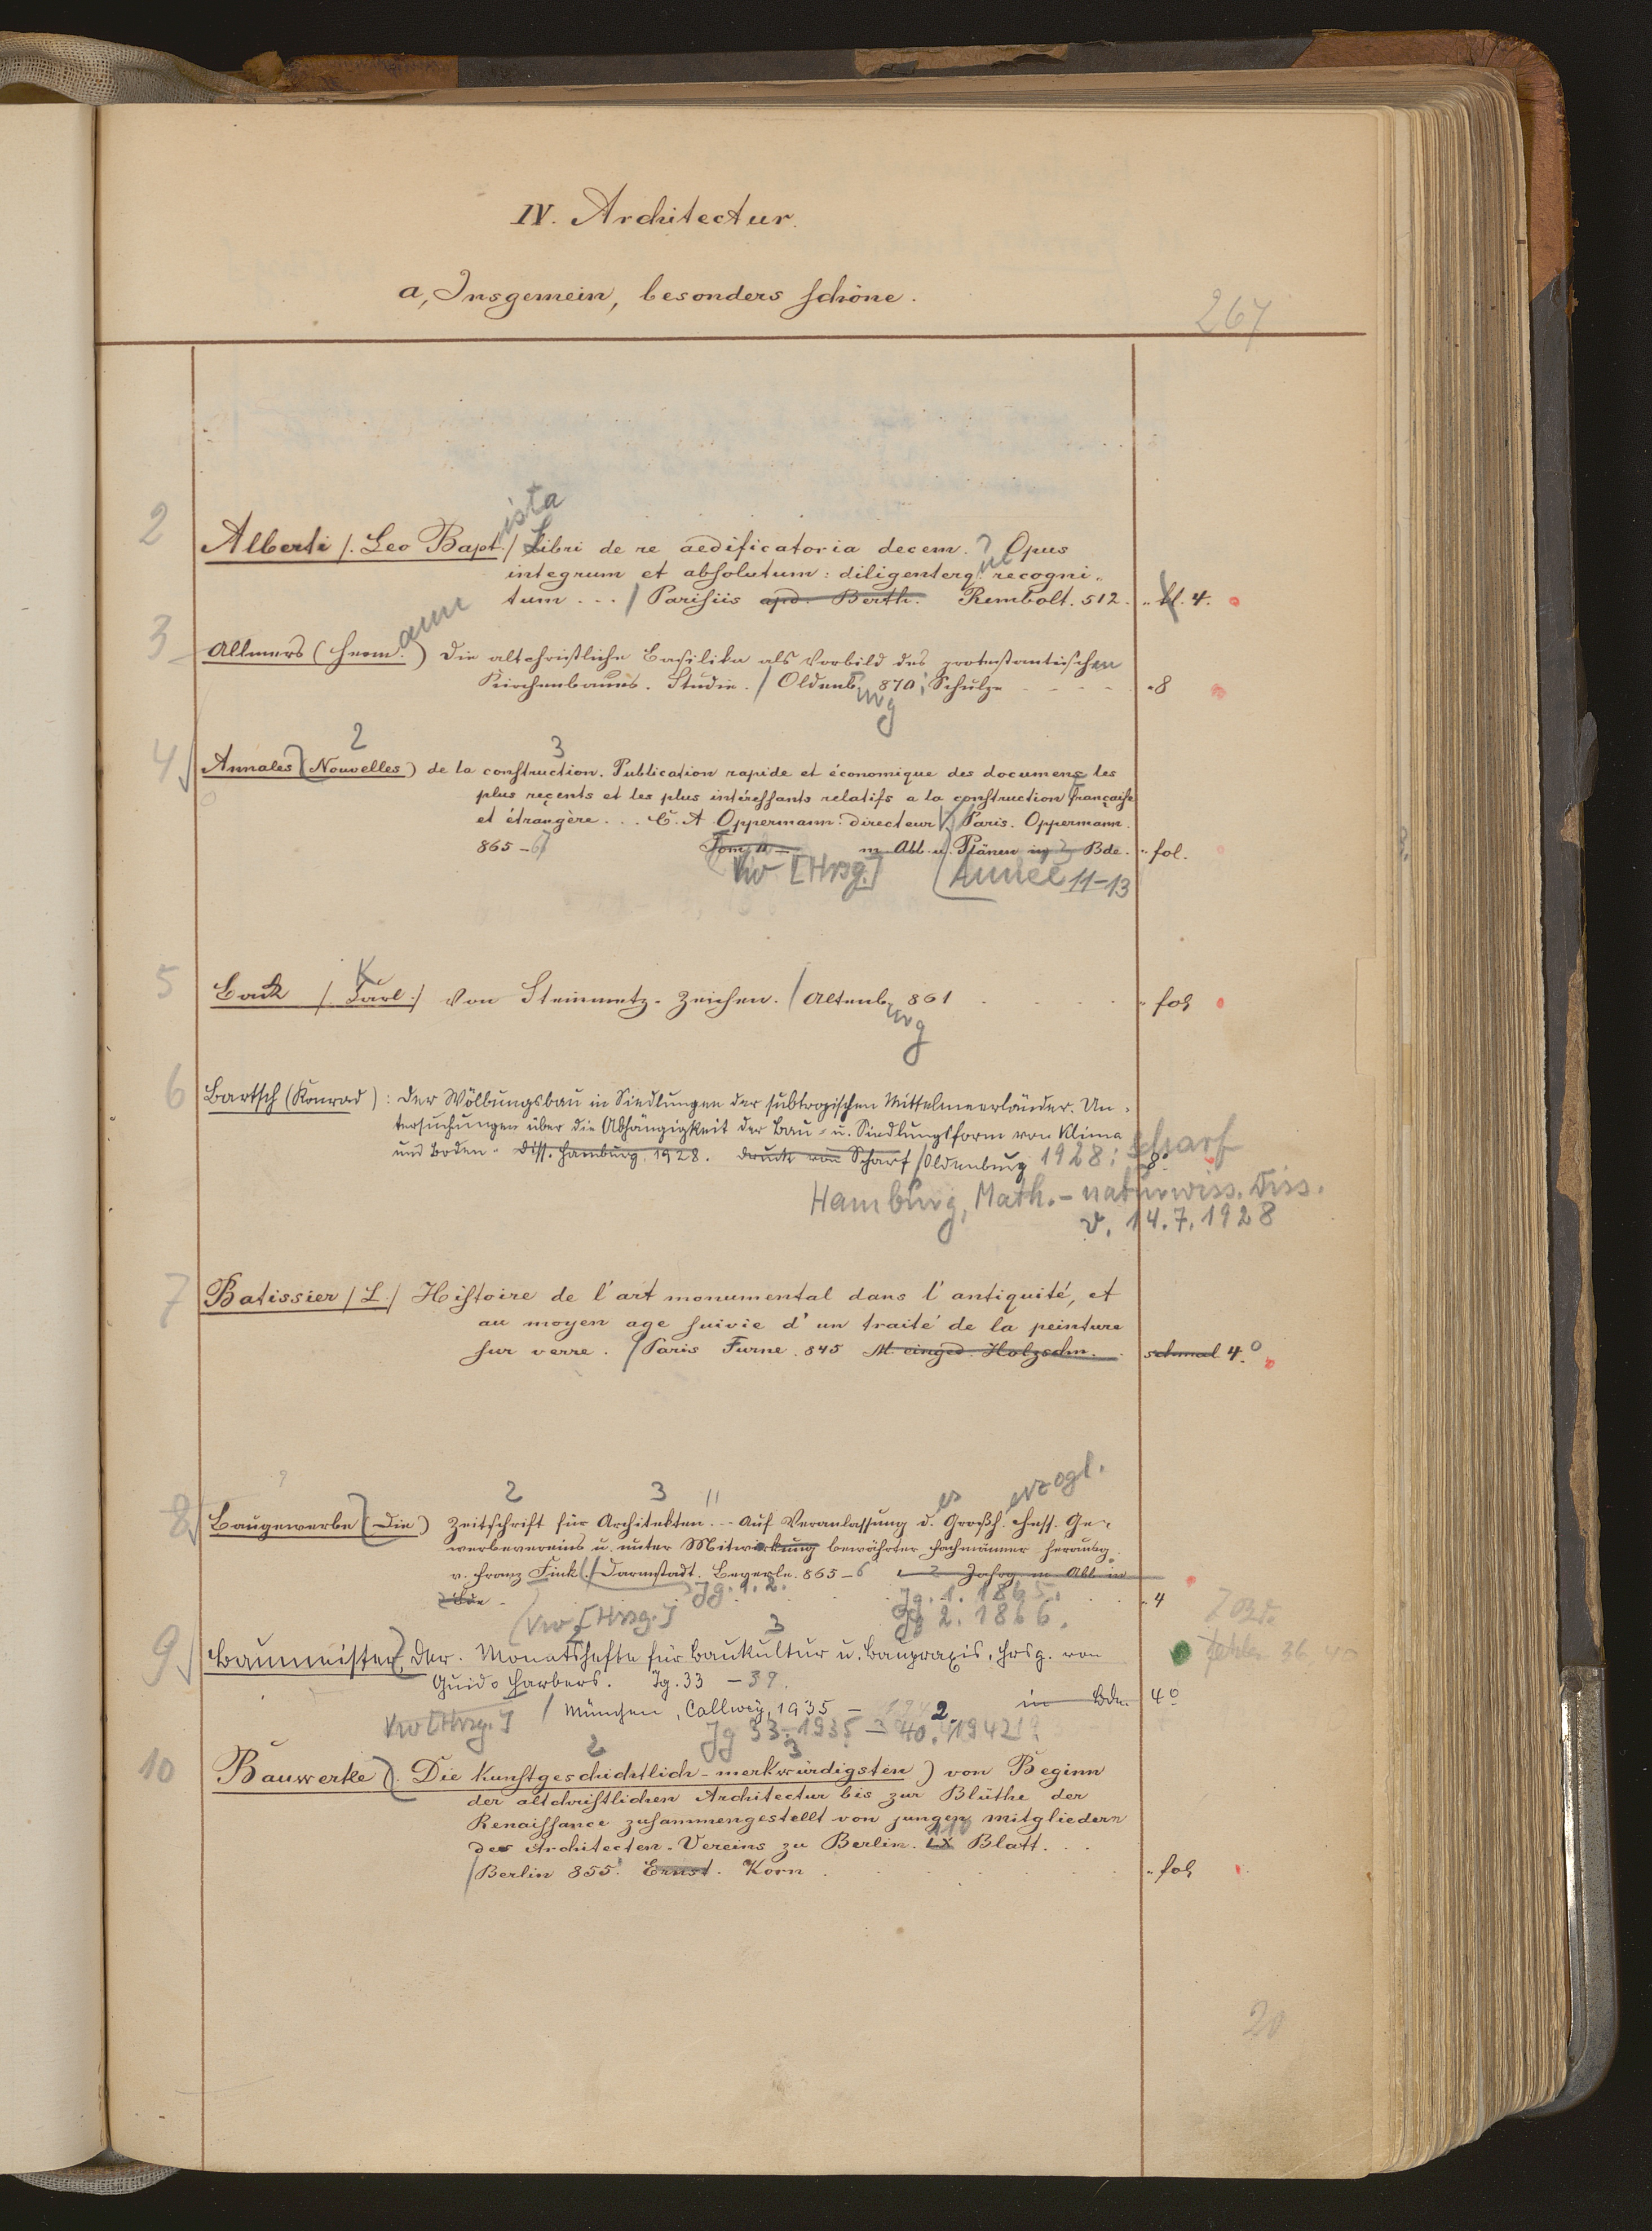 IV. Architectur.
a, Insgemein, besonders schöne.
267
ista
2 Alberti /. Leo Bapt./ Libri de re aedificatoria decem. ? Opus
integrum et absolutum: diligenterq. ue recogni-
tum ... / Parisiis apd. Berth. Rembolt. 512. " kl. 4.
3 Allmers (Herm. ann) Die altchristliche Basilika als Vorbild des protestantischen
Kirchenbaues. Studie. / Oldenb. urg 870; Schulze - - - - " 8
2 3
4 Annales (Nouvelles) de la construction. Publication rapide et économique des documens les
plus reçents et les plus intéressants relatifs a la construction française
et étrangère ... C. A Oppermann. directeur / Paris. Oppermann.
865-67 Tom. m. Abb. u. Plänen in 2 Bde. " fol.
Vw [Hrsg.] (Année 11-13
K
5 Back /. Carl./ Von Steinmetz-Zeichen. / Altenb. urg 861 . . . . " fol.
6 Bartsch (Konrad): Der Wölbungsbau in Siedlungen der subtropischen Mittelmeerländer. Un-
tersuchungen über die Abhängigkeit der Bau- u. Siedlungsform von Klima
und Boden. Diss. Hamburg. 1928. Druck von Scharf / Oldenburg 1928: Scharf 8°
Hamburg, Math.-naturwiss. Diss.
v. 14.7.1928
7 Batissier /L./ Histoire de l'art monumental dans l'antiquité, et
au moyen age suivie d'un traité de la peinture
sur verre. / Paris Furne. 845 M. einged. Holzschn. . schmal 4.°
2 3 es erzogl.
8 Baugewerbe (Die) Zeitschrift für Architekten. - Auf Veranlassung d. Großh. Hess. Ge-
werbevereins u. unter Mitwirkung bewährter Fachmänner herausg.
v. Franz Fink. / Darmstadt. Beyerle. 865-6 2 Jahrg. m Abb in
2 Bde - Jg. 1. 2. Jg. 1. 1865. " 4 2 Bde
(Vw [Hrsg.] Jg 2. 1866.
3
9 Baumeister, Der. Monatshefte für Baukultur u. Baupraxis, hrsg. von fehlen 36, 40
Guido Harbers. Jg. 33 - 39.
/ München, Callwey, 1935 - 1942. in Bdn. 4°
Vw [Hrsg.] Jg 33. 1935 - 40. 1942
2 3
10 Bauwerke (. Die kunstgeschichtlich-merkwürdigsten) von Beginn
der altchristlichen Architectur bis zur Blüthe der
Renaissance zusammengestellt von jungen mitgliedern
des Architecten-Vereins zu Berlin. LX Blatt. . .
/ Berlin 855. Ernst. Korn . . . . " fol.
20